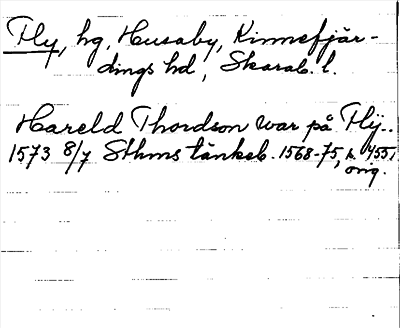 Fly, hg, Husaby, Kinnefjär-
dings hd, Skarab. l.
Hareld Thordson war på Flÿ..
1573 8/7 Sthms tänkeb. 1568-75, h. 455,
orig.